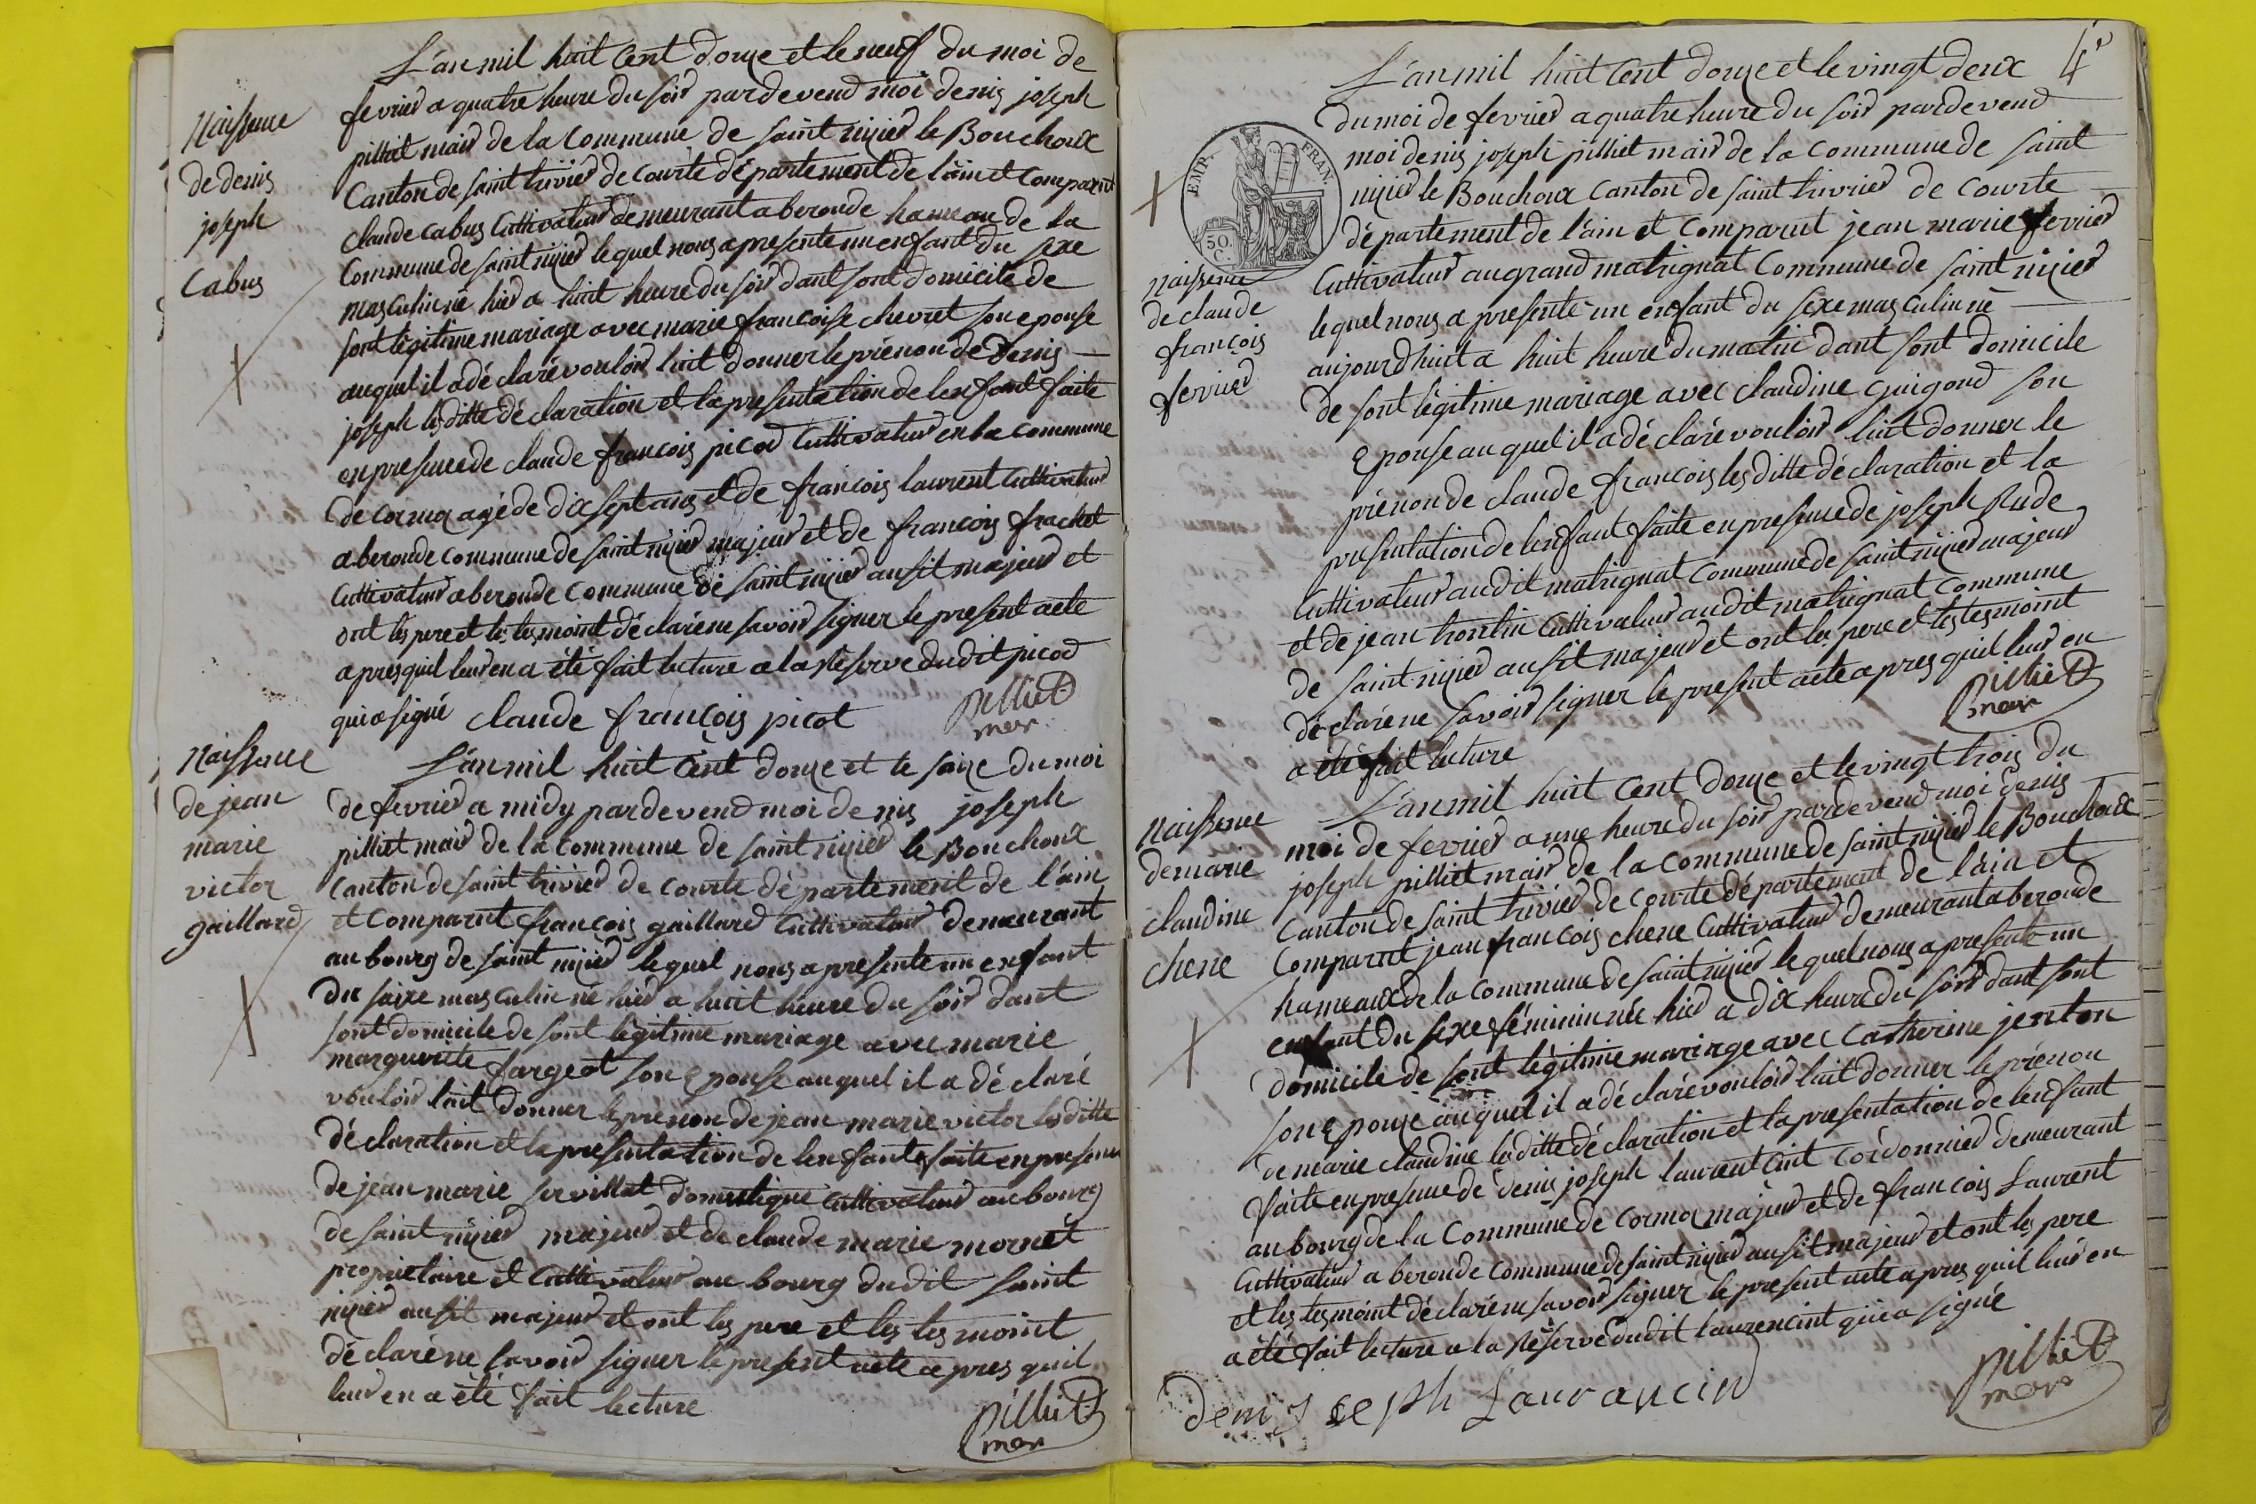 L'an mil huit Cent douze et le neuf du moi de
Naissence
fevrier a quatre heure du soir pardevend moi denis joseph
de denis
pilliat mair de la Commune de saint nizier le Bouchoux
joseph
Canton de saint trivier de Courte département de l'ain et Comparut
Cabus
Claude Cabus Cuttivateur demeurant a beronde hameau de la
Commune de saint nizier le quel nous a presente un enfant du sexe
masculin né hier a huit heure du soir dant sont domicile de
sont legitime mariage avec marie francoise chevret son epouse
auquel il a déclaré vouloir luit donner le prénon de Denis
joseph lesditte déclaration et la presentation de lenfant faite
en presence de claude francois picod Cuttivateur en la commune
de cormoz agé de dix sept ans et de francois laurent Cuttivateur
a beronde commune de saint nizier majeur et de francois frachet
Cuttivateur a beronde Commune de saint nizier ausit majeur et
ont les pere et les tesmoint déclaréne savoir signer le present acte
apres quil leur en a été fait lecture a la réserve dudit picod
qui a signé claude françois picot
pilliet
mer
Naissence
de jean
marie
victor
gaillard
L'an mil huit Cent douze et le saize du moi
de fevrier a midy pardevend moi denis joseph
pilliet mair de la commune de saint nizier le Bouchoux
Canton de saint trivier de Courte département de l'ain
et Comparut francois gaillard Cuttivateur demeurant
au bourg de saint nizier le quel nous a presente un enfant
du saixe masculin né hier a huit heure du soir dant
sont domicile de sont legitime mariage avec marie
marguerite fargeot son Epouse auquel il a déclaré
vouloir luit donner le prenon de jean marie victor lesditte
déclaration et la presentation de lenfant faite en presence
de jean marie servillat domestique Cuttivateur au bourg
de saint nizier majeur et de claude marie mornet
proprietaire et Cuttivateur au bourg dudit saint
nizier ausit majeur et ont les pere et les tesmoint
déclaréne savoir signer le present acte apres quil
leur en a été fait lecture
pilliet
mer
4e
L'an mil huit Cent douze et le vingt deux
du moi de fevrier a quatre heure du soir pardevend
moi denis joseph pilliet mair de la Commune de saint
nizier le Bouchoux Canton de saint trivier de Courte
EMP. FRAN
50.
C.
département de l'ain et Comparut jean marie fevrier
Cuttivateur au grand matrignat Commune de saint nizier
Naissence
de claude
françois
fevrier
le quel nous a presenté un enfant du sexe masculin né
aujourdhuit a huit heure du matin dant sont domicile
de sont légitime mariage avec claudine guigond son
Epouse auquel il a déclaré vouloir luit donner le
prénon de claude francois lesditte déclaration et la
presentation de lenfant faite en presence de joseph Rude
Cuttivateur audit matrignat Commune de saint nizier majeur
et de jean hontin Cuttivateur audit matrignat Commune
de saint nizier ausit majeur et ont les pere et les tesmoint
déclaréne savoir signer le present acte apres quil leur en
a été fait lecture
pilliet
mer
L'an mil huit Cent douze et le vingt trois du
Naissence
de marie
claudine
chene
moi de fevrier a une heure du soir pardevend moi denis
joseph pilliet mair de la commune de saint nizier le Bouchoux
Canton de saint trivier de Courte département de l'ain et
Comparut jean francois chene Cuttivateur demeurant a beronde
hameaux de la commune de saint nizier le quel nous a presente un
enfant du sexe féminin née hier a dix heure du soir dant sont
domicile de sont légitime mariage avec Catherine jenton
son Epouze auquel il a déclaré vouloir luit donner le prénon
de marie claudine laditte déclaration et la presentation de lenfant
faite en presence de denis joseph laurent Cint Cordonnier demeurant
au bourg de la Commune de cormoz majeur et de francois Laurent
Cuttivateur a beronde commune de saint nizier ausit majeur et ont les pere
et les tesmoint déclaréne savoir signer le present acte apres quil leur en
a été fait lecture a la réserve dudit laurencint qui a signé
denis joseph Laurancin
pilliet
mer